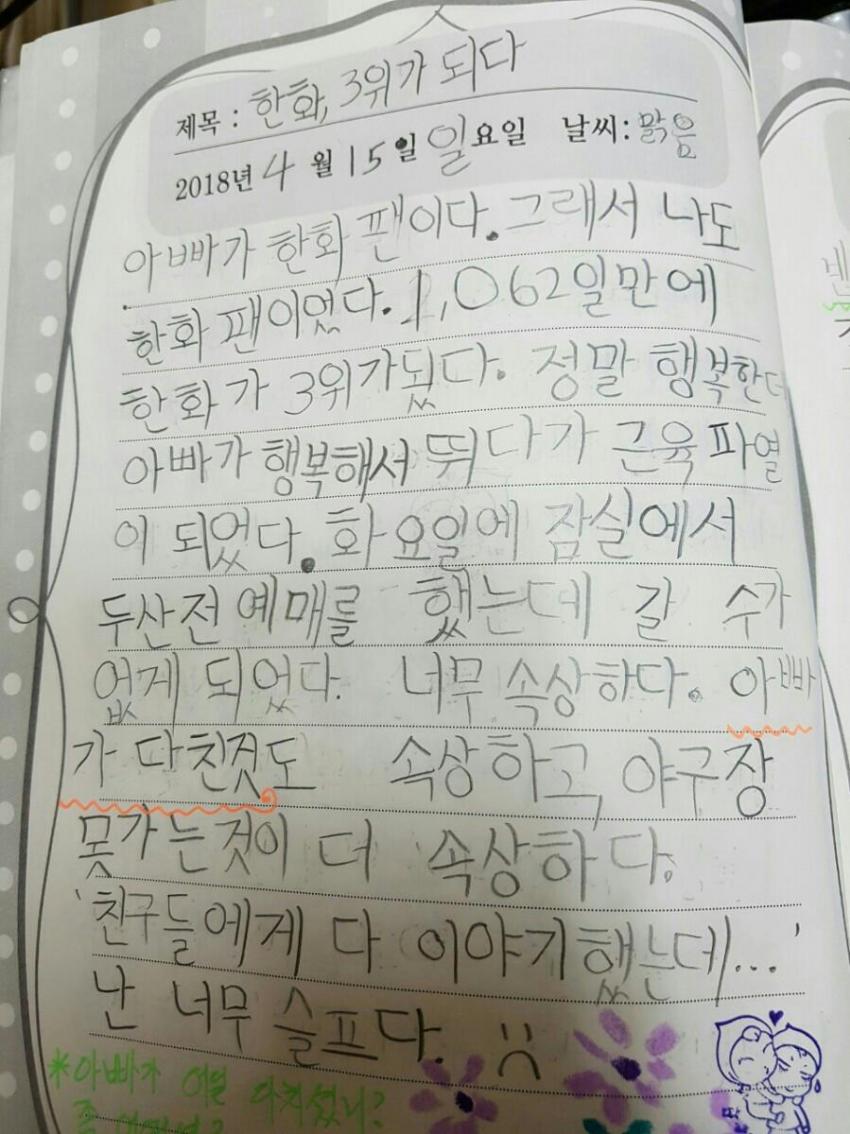 제목 : 한화, 3위가 되다
2018년 4 월 15 일 일요일 날씨: 맑음
아빠가 한화 팬이다. 그래서 나도
한화 팬이었다. 1,062일만에
한화가 3위가됬다. 정말 행복한다
아빠가 행복해서 뛰다가 근육파열
이 되었다. 화요일에 잠실에서
두산전 예매를 했는데 갈 수가
없게 되었다. 너무 속상하다. 아빠
가 다친것도 속상하고, 야구장
못가는것이 더 속상하다.
'친구들에게 다 이야기했는데...'
난 너무 슬프다.
*아빠가 다치셨니?